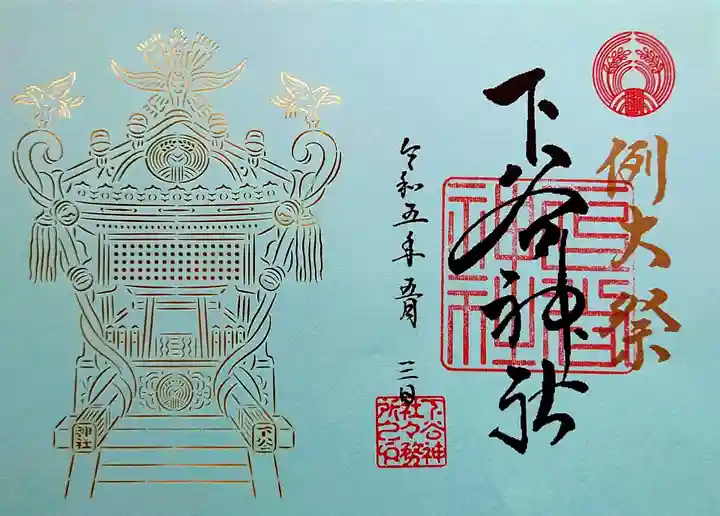 例大祭
下谷神社
令和五年 五月 三日
下谷神
社々務
所之印
下谷
神社
下谷
神社